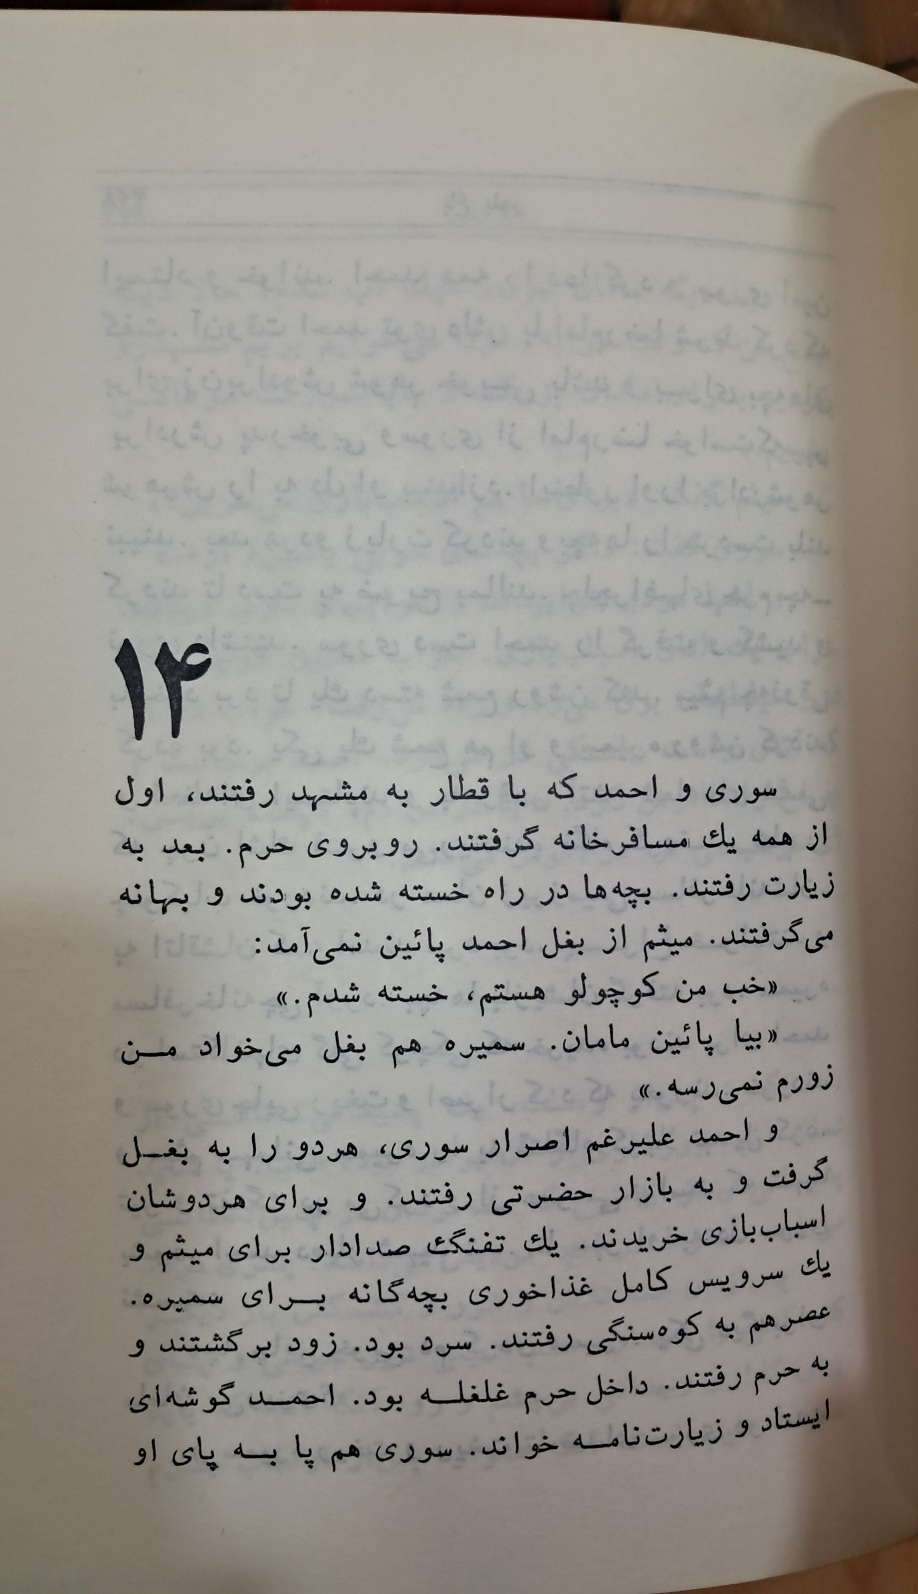 ۱۴
سوری و احمد که با قطار به مشهد رفتند، اول
از همه یك مسافرخانه گرفتند. روبروی حرم. بعد به
زیارت رفتند. بچه‌ها در راه خسته شده بودند و بهانه
می‌گرفتند. میثم از بغل احمد پائین نمی‌آمد:
«خب من کوچولو هستم، خسته شدم.»
«بیا پائین مامان. سمیره هم بغل می‌خواد مــن
زورم نمی‌رسه.»
و احمد علیرغم اصرار سوری، هردو را به بغــل
گرفت و به بازار حضرتی رفتند. و برای هردوشان
اسباب‌بازی خریدند. یك تفنگ صدادار برای میثم و
یك سرویس کامل غذاخوری بچه‌گانه بــرای سمیره.
عصرهم به کوه‌سنگی رفتند. سرد بود. زود برگشتند و
به حرم رفتند. داخل حرم غلغلــه بود. احمــد گوشه‌ای
ایستاد و زیارت‌نامــه خواند. سوری هم پا بــه پای او